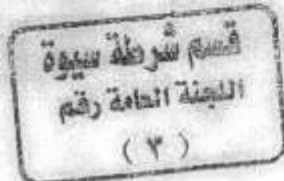 قسم شرطة سيوة
اللجنة العامة رقم
( ٣ )